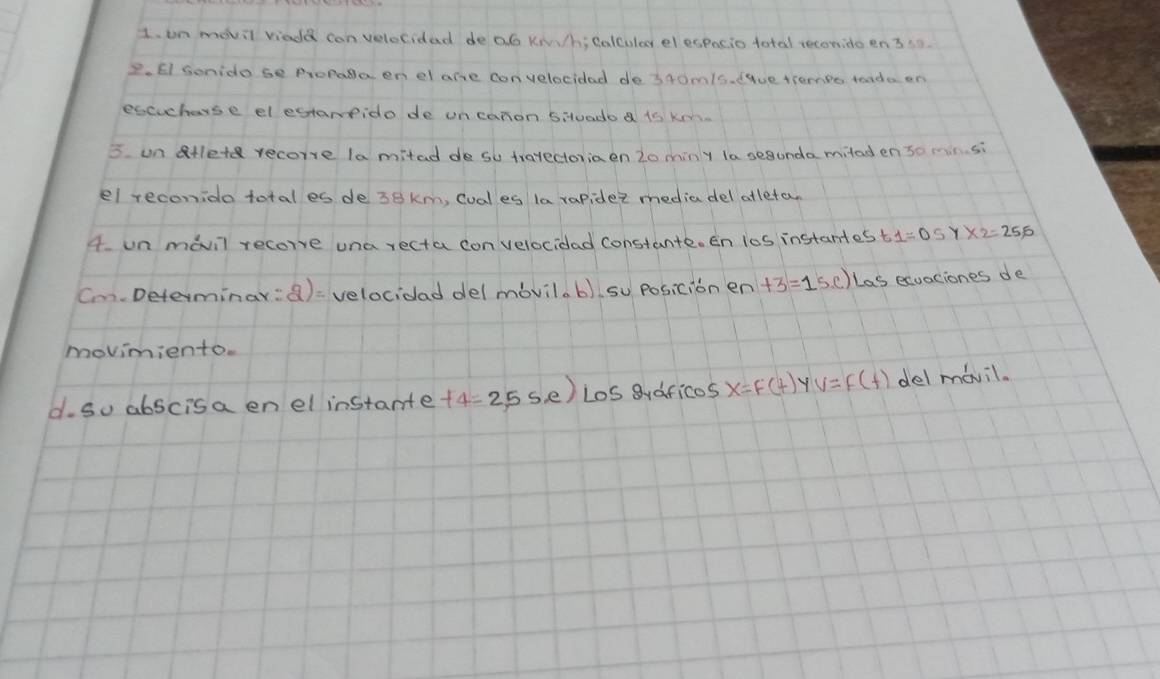 1. un movil viada con velocidad de 06 km/h; calcular el espacio total reconido en
2. El sonido se Propaga en el aire con velocidad de 340m/s. ¿que tiempo tarda en
escucharse el estampido de un cañon situado a 15 km.
3. un atleta recorre la mitad de su trayectoria en 20 min y la segunda mitad en 30 min. si
el reconido total es de 38 km, cual es la rapidez media del atleta.
4. un móvil recorre una recta con velocidad constante. En los instantes t1=0s y x2=25,5
cm. Determinar: a)= velocidad del móvil. b). su Posición en t3=1s. c) Las ecuaciones de
movimiento.
d. su abscisa en el instante t4=2,5 s. e) Los gráficos x=f(t) y v=f(t) del móvil.